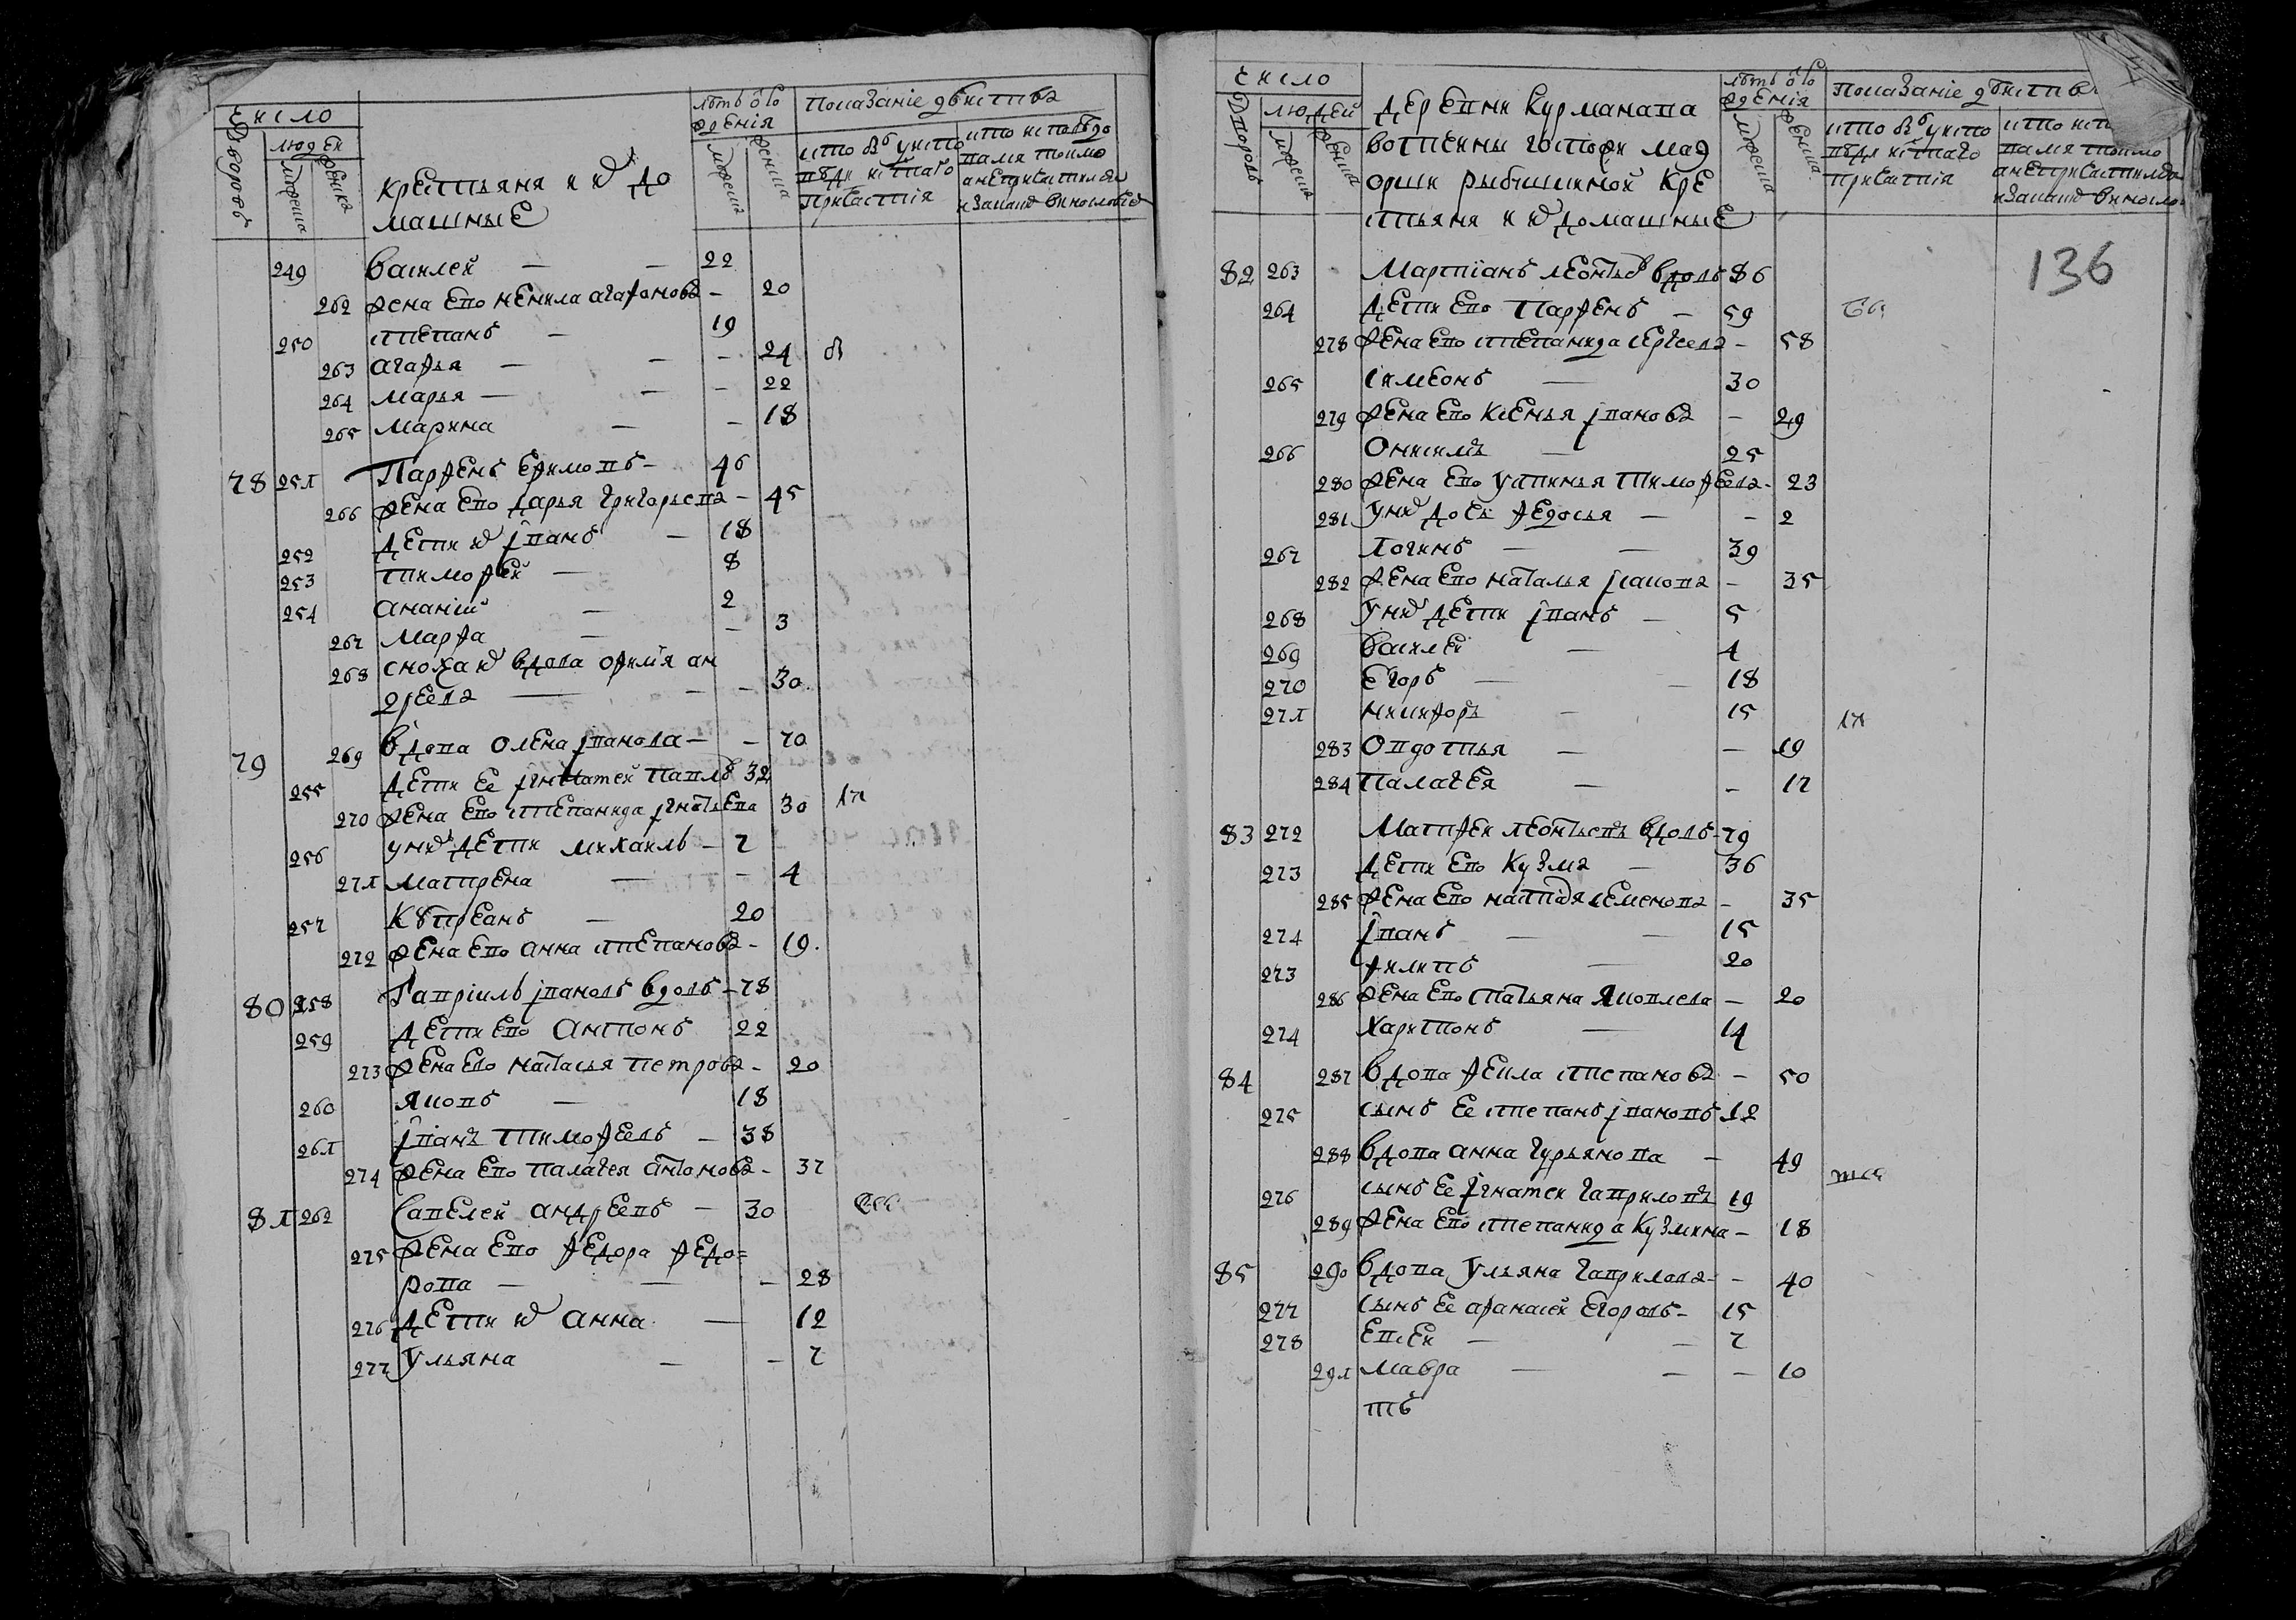 число
дворовъ
людей
мужеска
женска
крестьяня и их до
машные
лѣтъ от ро
ждения
мужеска
женска
показание действа
кто был у испо
веди и святаго
причастия
249 Василей — — 22
262 жена ево Ненила Агафонова — 20
250 Степанъ — 19
263 Агафья — — — 24
264 Марья — — — 22
265 Марина — — 18
78 251 Парфенъ Ефимовъ — 46
266 жена ево Дарья Григорьева — 45
252 дети их Іванъ — 18
253 Тимофей — 8
254 Ананий — 2
267 Марфа — — 3
268 сноха их вдова Офимия Ан
дреева — — — 30
79 269 вдова Олена Іванова — — 70
255 дети ее Игнатей Павловъ 32
270 жена ево Степанида Игнатьева 30
256 у них дети Михаилъ — 7
271 Матрена — — 4
257 Кѵпреянъ — 20
272 жена ево Анна Степанова — 19
80 258 Гавріилъ Івановъ вдовъ — 78
259 дети ево Антонъ 22
273 жена ево Настасья Петрова — 20
260 Яковъ — 18
261 Іванъ Тимофеевъ — 38
274 жена ево Палагея Антонова — 37
81 262 Савелей Андреевъ — 30
275 жена ево Федора Федо=
рова — — — 28
276 дети их Анна — 12
277 Ульяна — — 7
число
дворовъ
людей
мужеска
женска
деревни Курманава
вотчины госпожи маэ
орши Рыбушкиной кре
стьяня и их домашные
лѣтъ от ро
ждения
мужеска
женска
показание действ
кто был у испо
веди и святаго
причастия
136
82 263 Мартіанъ Леонтьев вдовъ 86
264 дети ево Парфенъ — 59
278 жена ево Степанида Сергеева — 58
265 Симеонъ — 30
279 жена ево Ксенья Іванова — 29
266 Онисимъ — 25
280 жена ево Устинья Тимофеева — 23
281 у них дочь Федосья — — 2
267 Логинъ — — 39
282 жена ево Наталья Ісакова — 35
268 у них дети Іванъ — 5
269 Василей — 4
270 Егоръ — — 18
271 Никифоръ — 15
283 Овдотья — — 19
284 Палагея — — 17
83 272 Матфей Леонтьевъ вдовъ — 79
273 дети ево Кузма — 36
285 жена ево Наталья Семенова — 35
274 Іванъ — — 15
273 Филипъ — 20
286 жена ево Татьяна Яковлева — 20
274 Харитонъ — 14
84 287 вдова Фекла Степанова — 50
275 сынъ ее Степанъ Івановъ 12
288 вдова Анна Гурьянова — 49
276 сынъ ее Игнатей Гавриловъ 19
289 жена ево Степанида Кузмина — 18
85 290 вдова Ульяна Гаврилова — — 40
277 сынъ ее Афанасей Егоровъ — 15
278 Евсей — — 7
291 Мавра — — — 10